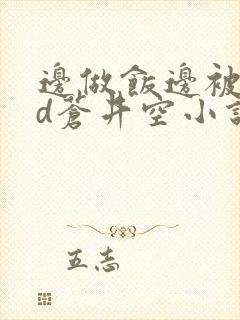 邊做飯邊被
d蒼井空小說
五志